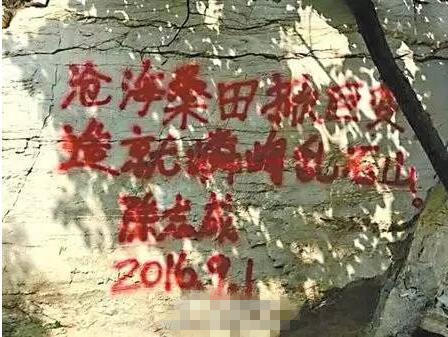 沧海桑田巨变
造就嶙峋乱石山!
陈志
2016.9.1